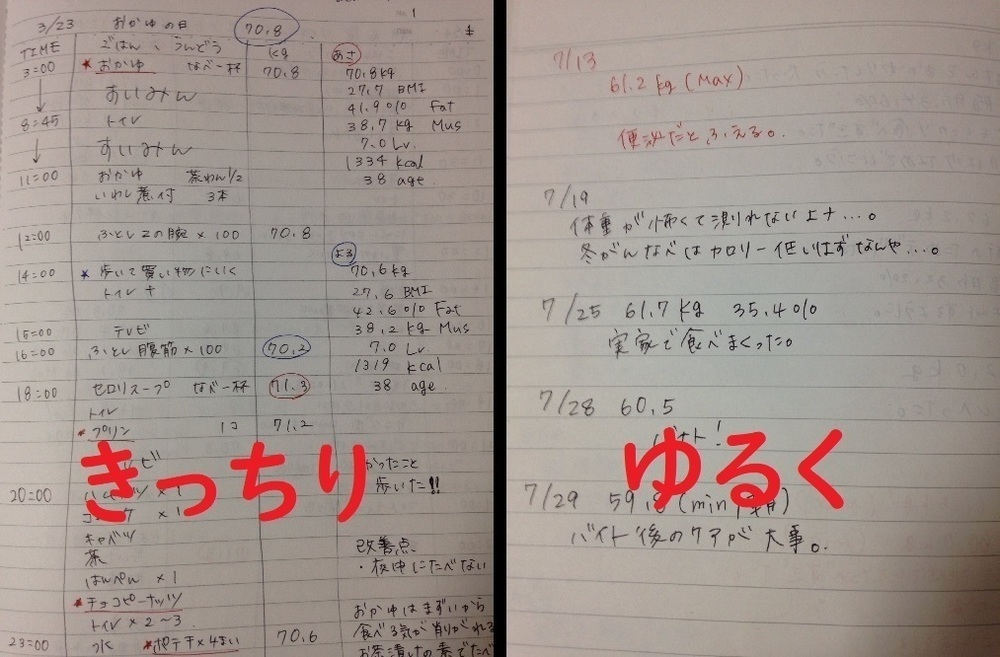 No. 1
3/23 おかゆの日 70.8
TIME ごはん、うんどう kg あさ
3:00 *おかゆ なべ一杯 70.8 70.8kg
27.7 BMI
すいみん 41.9% Fat
8:45 トイレ 38.7 kg Mus
7.0 Lv.
すいみん 1334 kcal
11:00 おかゆ 茶わん1/2 38 age
いわし煮付 3本
12:00 ふとし 2の腕×100 70.8
よる
14:00 *歩いて買い物にいく 70.6kg
トイレ 27.6 BMI
42.6% Fat
15:00 テレビ 38.2 kg Mus
16:00 ふとし腹筋×100 70.2 7.0 Lv.
1319 kcal
18:00 セロリスープ なべ一杯 71.3 38 age
トイレ
*プリン 1コ 71.2
こと
20:00 ×1 歩いた!!
きっちり
×1
キャベツ
茶 改善点
はんぺん×1 ・夜中にたべない
*チョコピーナッツ
トイレ×2~3 おかゆはまずいから
23:00 水 *ポテチ×4まい 70.6 食べる気が削がれる
お茶漬けの素でたべ
7/13
61.2 kg (Max)
便秘だとふえる。
7/19
体重が怖くて測れない上ナ…。
冬がんなべはカロリー低いはずなんや…。
7/25 61.7 kg 35.4%
実家で食べまくった。
7/28 60.5
ゆるく
7/29 59. (min
バイト後のケアが大事。